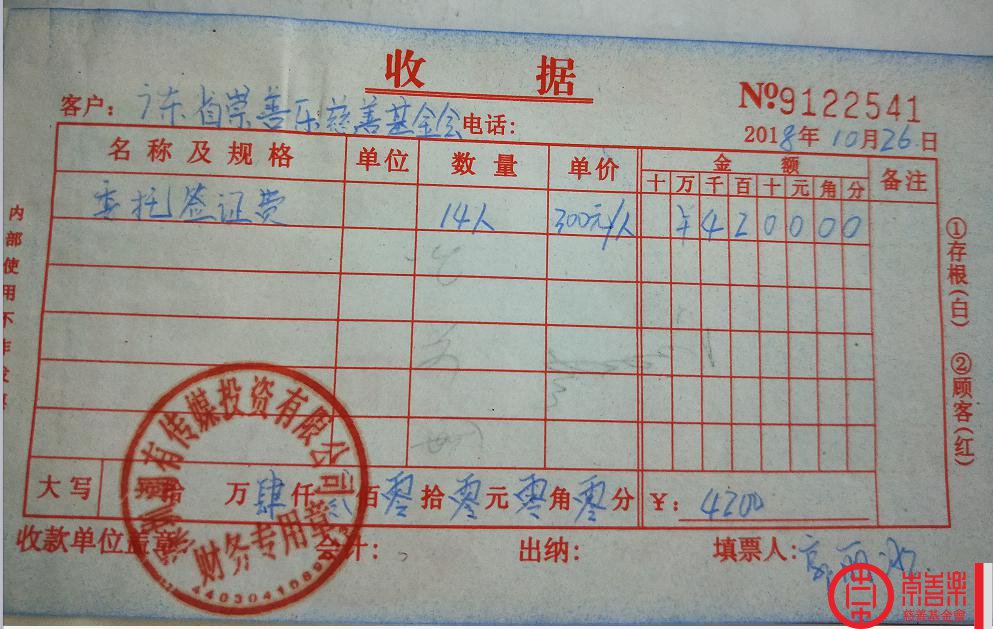 收 据
№9122541
客户：广东省崇善乐慈善基金会 电话：
2018年10月26日
名称及规格 单位 数量 单价 金额 备注
十 万 千 百 十 元 角 分
委托签证费 14人 300元/人 ¥420000
大写 拾 万 肆仟 贰佰 零拾 零元 零角 零分 ¥：4200
收款单位盖章 会计： 出纳： 填票人：
内部使用不作发票
①存根(白) ②顾客(红)
有传媒投资有限公司
财务专用章
崇善樂
慈善基金會